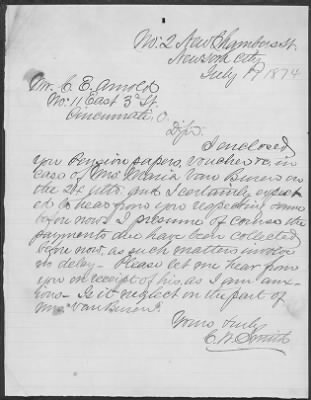 No: 2 New Chambers St.
New York City
July 17 1874
Mr. C. E. Arnold
No: 11 East 3d St.
Cincinnati, O.
I enclosed
you Pension papers, voucher &c in
case of Mrs Maria Van Buren on
the 24 ulto. and I certainly expect
ed to hear from you respecting same
before now. I presume of course the
payments due have been collected
before now, as such matters involve
no delay - Please let me hear from
you on receipt of this, as I am anx-
ious - Is it neglect on the part of
Mrs Van Buren?
Yours truly
Smith